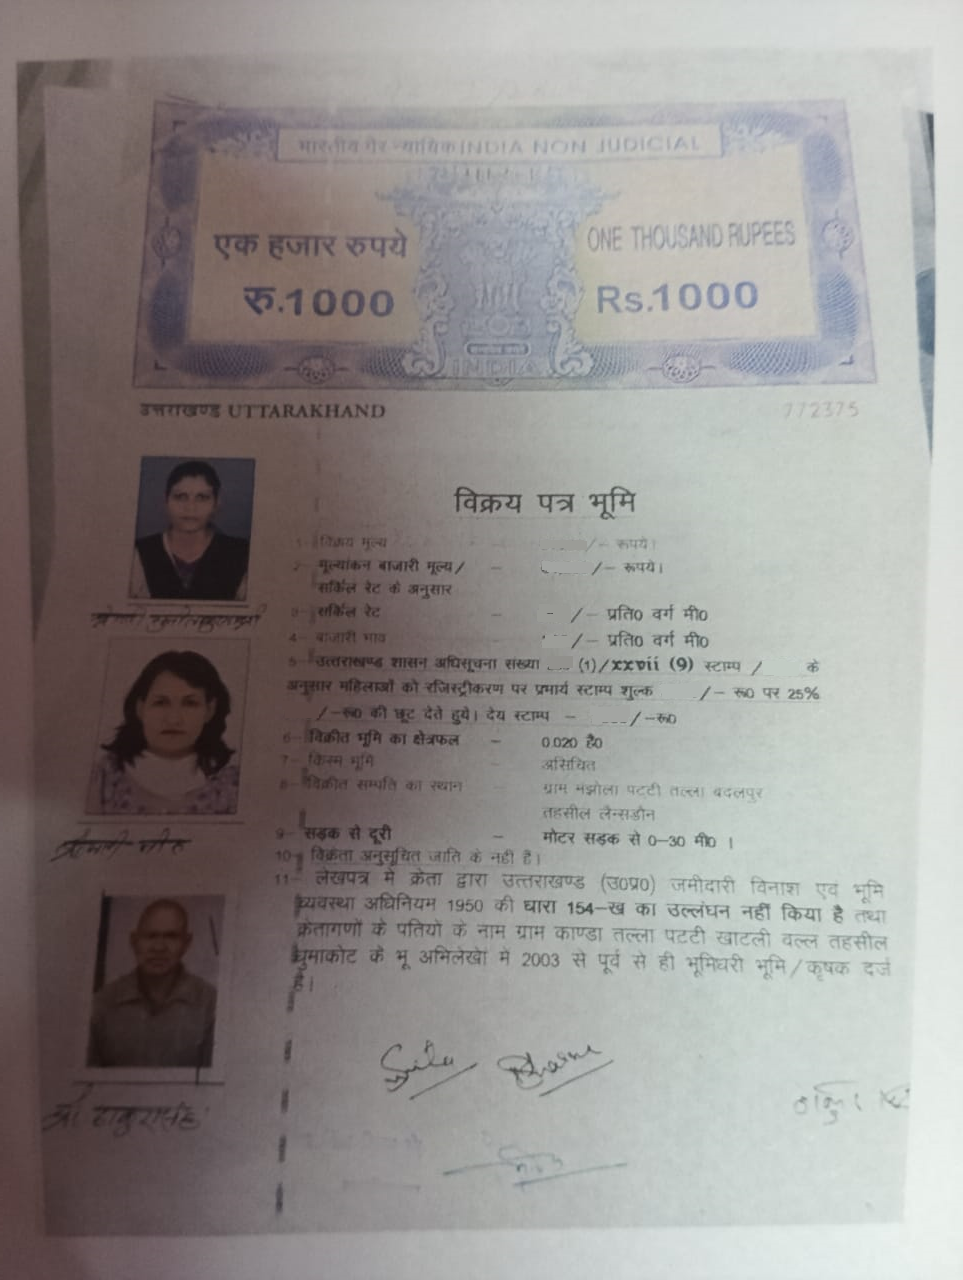 भारतीय गैर न्यायिक INDIA NON JUDICIAL
एक हजार रुपये
रु.1000
ONE THOUSAND RUPEES
Rs.1000
INDIA
उत्तराखण्ड UTTARAKHAND
772375
विक्रय पत्र भूमि
1- विक्रय मूल्य - /- रूपये।
2- मूल्यांकन बाजारी मूल्य/ - /- रूपये।
सर्किल रेट के अनुसार
3- सर्किल रेट - - /- प्रति0 वर्ग मी0
4- बाजारी भाव /- प्रति0 वर्ग मी0
5- उत्तराखण्ड शासन अधिसूचना संख्या (1)/xxvii (9) स्टाम्प / के
अनुसार महिलाओं को रजिस्ट्रीकरण पर प्रभार्य स्टाम्प शुल्क /- रू0 पर 25%
/-रू0 की छूट देते हुये। देय स्टाम्प - /-रू0
6- विक्रीत भूमि का क्षेत्रफल - 0.020 है0
7- किस्म भूमि - असिंचित
8- विक्रीत सम्पति का स्थान - ग्राम मंझोला पटटी तल्ला बदलपुर
तहसील लैन्सडौन
9- सड़क से दूरी - मोटर सड़क से 0-30 मी0 ।
10- विक्रेता अनुसूचित जाति के नहीं है।
11- लेखपत्र में क्रेता द्वारा उत्तराखण्ड (उ0प्र0) जमीदारी विनाश एवं भूमि
व्यवस्था अधिनियम 1950 की धारा 154-ख का उल्लंघन नहीं किया है तथा
क्रेतागणों के पतियों के नाम ग्राम काण्डा तल्ला पटटी खाटली वल्ल तहसील
धुमाकोट के भू अभिलेखों में 2003 से पूर्व से ही भूमिधरी भूमि/कृषक दर्ज
है।
श्रीमती
श्री ठाकुर सिंह
ठाकुर